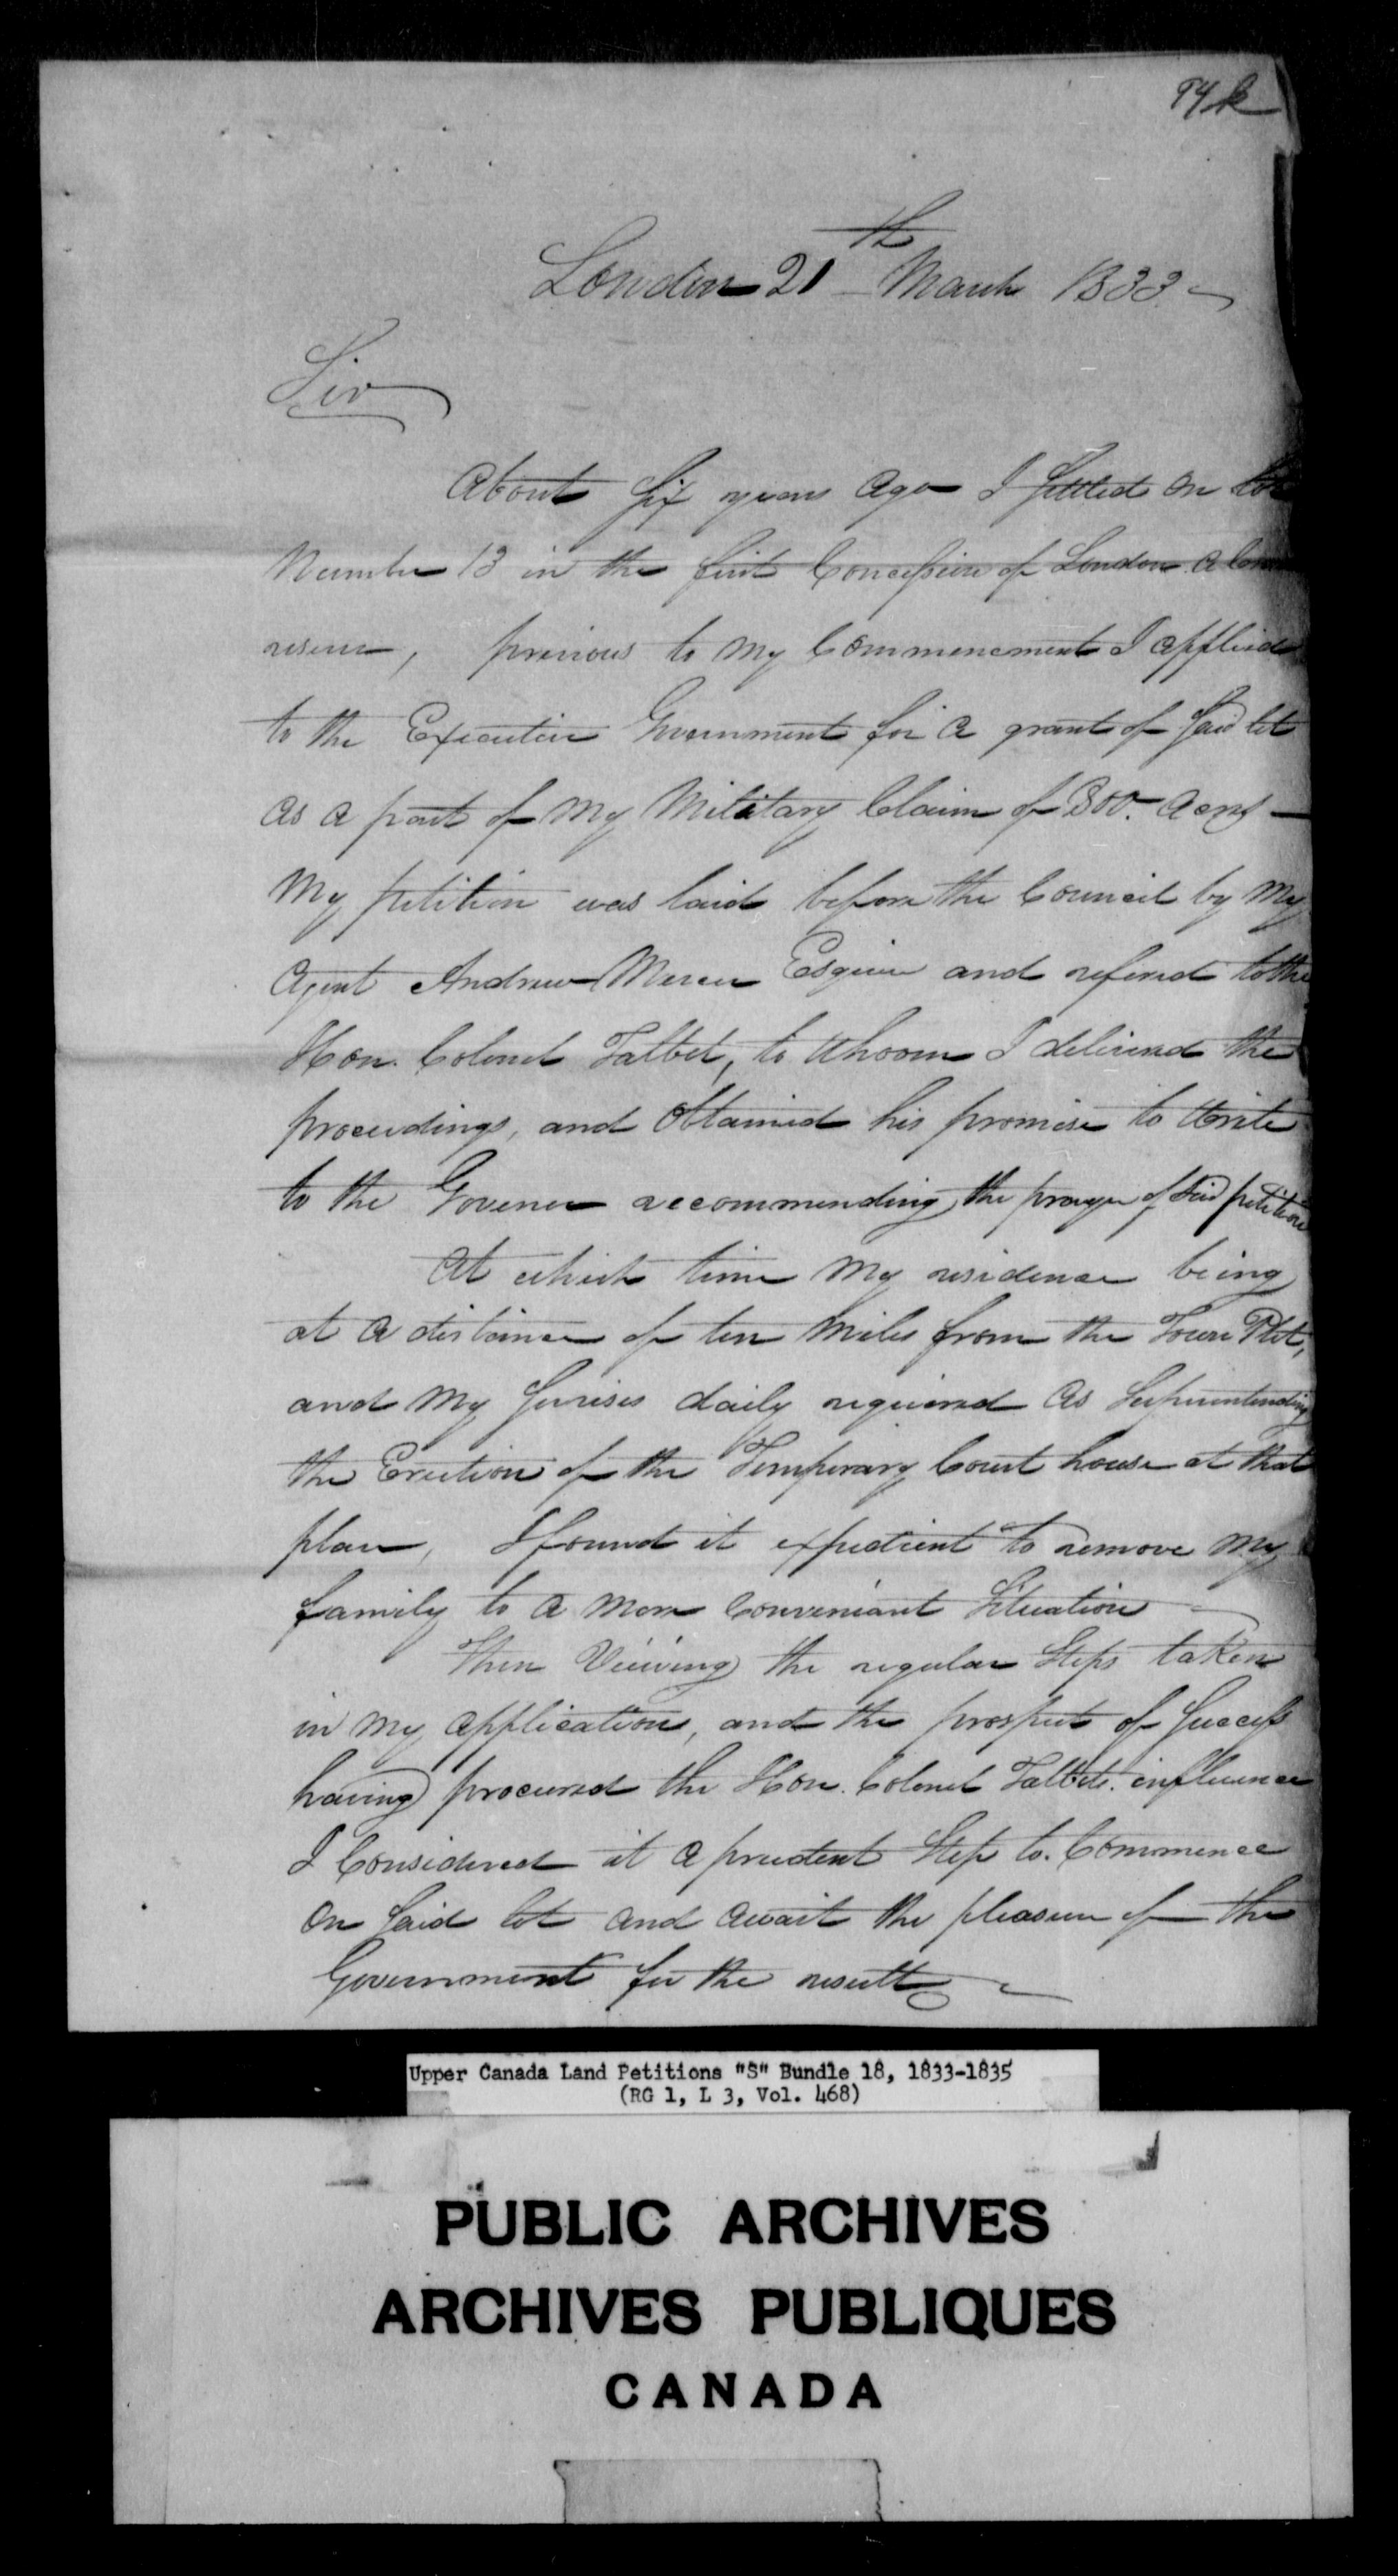 94k
London 21th March 1833
Sir
About Six years ago I Settled on lot
Number 13 in the first Concession of London a
reserve, previous to my Commencement I applied
to the Executive Government for a grant of Said lot
as a part of my Military Claim of 800. acres
My petition was laid before the Council by my
Agent Andrew Mercer Esquire and refered to the
Hon. Colonel Talbot, to Whoom I delivered the
proceedings, and Obtained his promise to Write
to the Govener reccommending the prayer of Said petition
At which time My residence being
at a distance of ten Miles from the Town Plot,
and My Servises daily required as Superintending
the Erection of the Temperary Court house at that
place, I found it expedient to remove My
family to a More Conveniant Situation
Then Viewing the regular Steps taken
in my application, and the prospect of Success
having procured the Hon. Colonel Talbots. influence
I Considered it a prudent Step to. Commence
on Said lot and await the pleasure of the
Government for the result
Upper Canada Land Petitions "S" Bundle 18, 1833-1835
(RG 1, L 3, Vol. 468)
PUBLIC ARCHIVES
ARCHIVES PUBLIQUES
CANADA